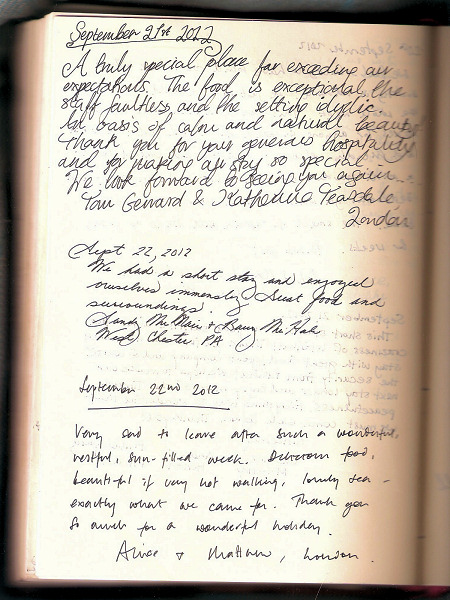 September 21st 2012
A truly special place far exceeding our
expectations. The food is exceptional, the
staff faultless and the setting idyllic.
An oasis of calm and natural beauty
Thank you for your generous hospitality
and for making our stay so special.
We look forward to seeing you again.
Tom Gerrard & Katherine Teasdale,
London
Sept 22, 2012
We had a short stay and enjoyed
ourselves immensely. Great food and
surroundings.
Sandy &
West Chester, PA
September 22nd 2012
Very sad to leave after such a wonderful,
restful, sun-filled week. Delicious food,
beautiful if very hot walking, lovely sea -
exactly what we came for. Thank you
so much for a wonderful holiday.
+ Matthew, London.